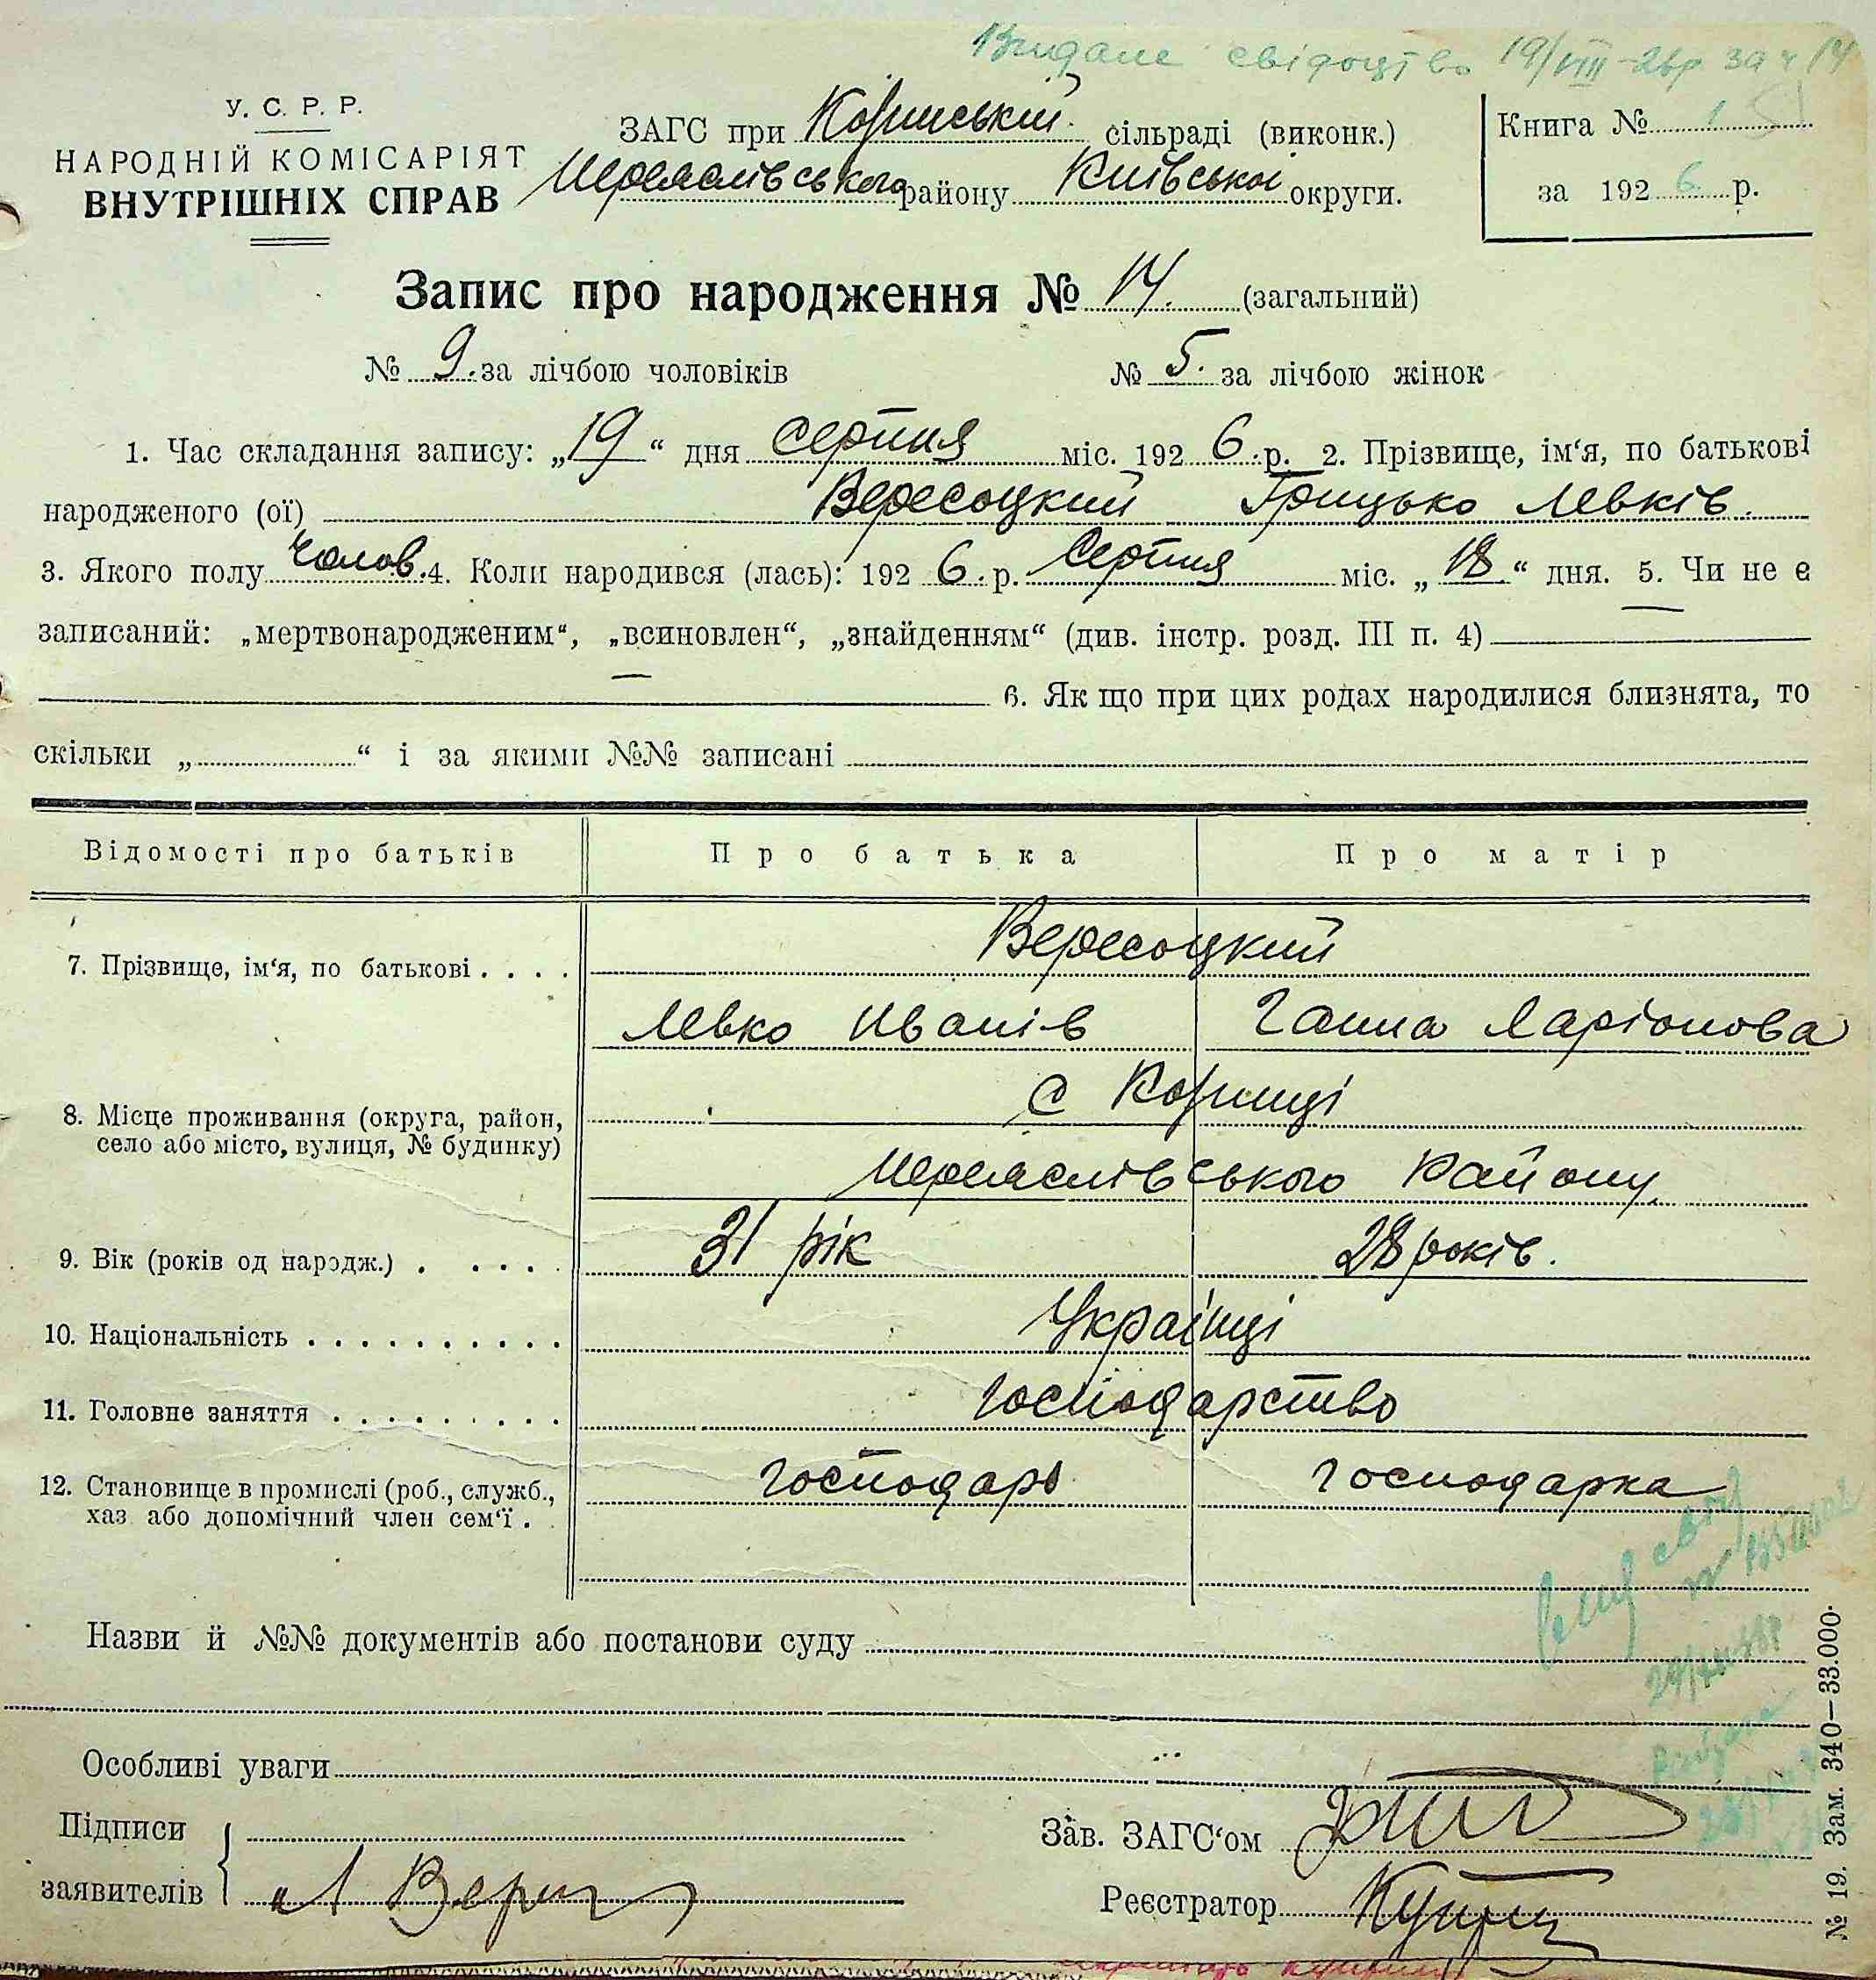 Видане свідоцтво 19/VIII-26р. за ч 14
У. С. Р. Р.
НАРОДНІЙ КОМІСАРІЯТ
ВНУТРІШНІХ СПРАВ
ЗАГС при Коринській сільраді (виконк.)
Переяслівського району Київської округи.
Книга № 1
за 1926 р.
Запис про народження № 14. (загальний)
№ 9. за лічбою чоловіків № 5. за лічбою жінок
1. Час складання запису: „19“ дня серпня міс. 1926.р. 2. Прізвище, ім‘я, по батькові
народженого (ої) Вересоцкий Грицько Левків.
3. Якого полу чолов. 4. Коли народився (лась): 1926.р. серпня міс. „18“ дня. 5. Чи не є
записаний: „мертвонародженим“, „всиновлен“, „знайденням“ (див. інстр. розд. III п. 4) —
— 6. Як що при цих родах народилися близнята, то
скільки „ “ і за якими №№ записані
Відомості про батьків Про батька Про матір
7. Прізвище, ім‘я, по батькові . . . . Вересоцкий
Левко Иванів Ганна Ларіонова
8. Місце проживання (округа, район, с Коринці
село або місто, вулиця, № будинку)
Переяслівського Району
9. Вік (років од народж.) . . . . . 31 рік 28 років.
10. Національність . . . . . . . . . . Українці
11. Головне заняття . . . . . . . . . Господарство
12. Становище в промислі (роб., служб., господарь господарка
хаз або допомічний член сем‘ї . .
Назви й №№ документів або постанови суду
Особливі уваги
Підписи
заявителів Л Вер
Зав. ЗАГС‘ом
Реєстратор
№ 19. Зам. 340—33.000.